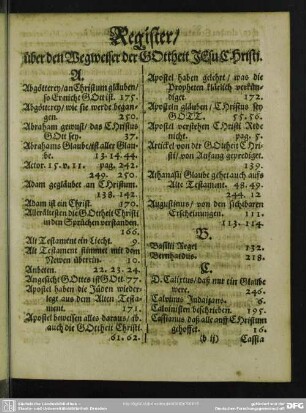 Register/
über den Wegweiser der GOttheit JEsu CHristi.
A.
Abgötterey/an Christum gläuben/
so Er nicht GOtt ist. 175.
Abgötterey/wie sie werde begangen.
250.
Abraham gewust/daß Christus
GOtt sey. 37.
Abrahams Glaube/ist aller Glaube.
13. 14. 44.
Actor. 15. v. 11. pag. 242.
249. 250.
Adam gegläubet an CHristum.
138. 142.
Adam ist ein Christ. 170.
Allerältesten die GOttheit Christi
in den Sprüchen verstanden.
166.
Alt Testament ein Liecht. 9.
Alt Testament stimmet mit dem
Newen überein. 10.
Anbeten. 22. 23. 24.
Angesicht GOttes ist GOtt. 77.
Apostel haben die Jüden wiederlegt
aus dem Alten Testament.
171.
Apostel beweisen alles daraus/
auch die GOttheit Christi.
61. 62.
Apostel haben gelehrt/was die
Propheten klärlich verkündiget.
172.
Aposteln gläuben/CHristus sey
GOTT. 55. 56.
Apostel verstehen CHristi Rede
nicht. pag. 5.
Artickel von der GOttheit Christi/
von Anfang geprediget.
139.
Athanasii Glaube gehet auch auffs
Alte Testament. 48. 49.
244. 12
Augustinus/von den sichtbaren
Erscheinungen. 111.
113. 114.
B.
Basilii Regel 132.
Bernhardus. 218.
C.
D. Calixtus/daß nur ein Glaube
were. 246.
Calvinus Judaizans. 6.
Calvinisten beschrieben. 195.
Cassianus daß alle auff CHristum
gehoffet. 16.
(b ij) Cassia